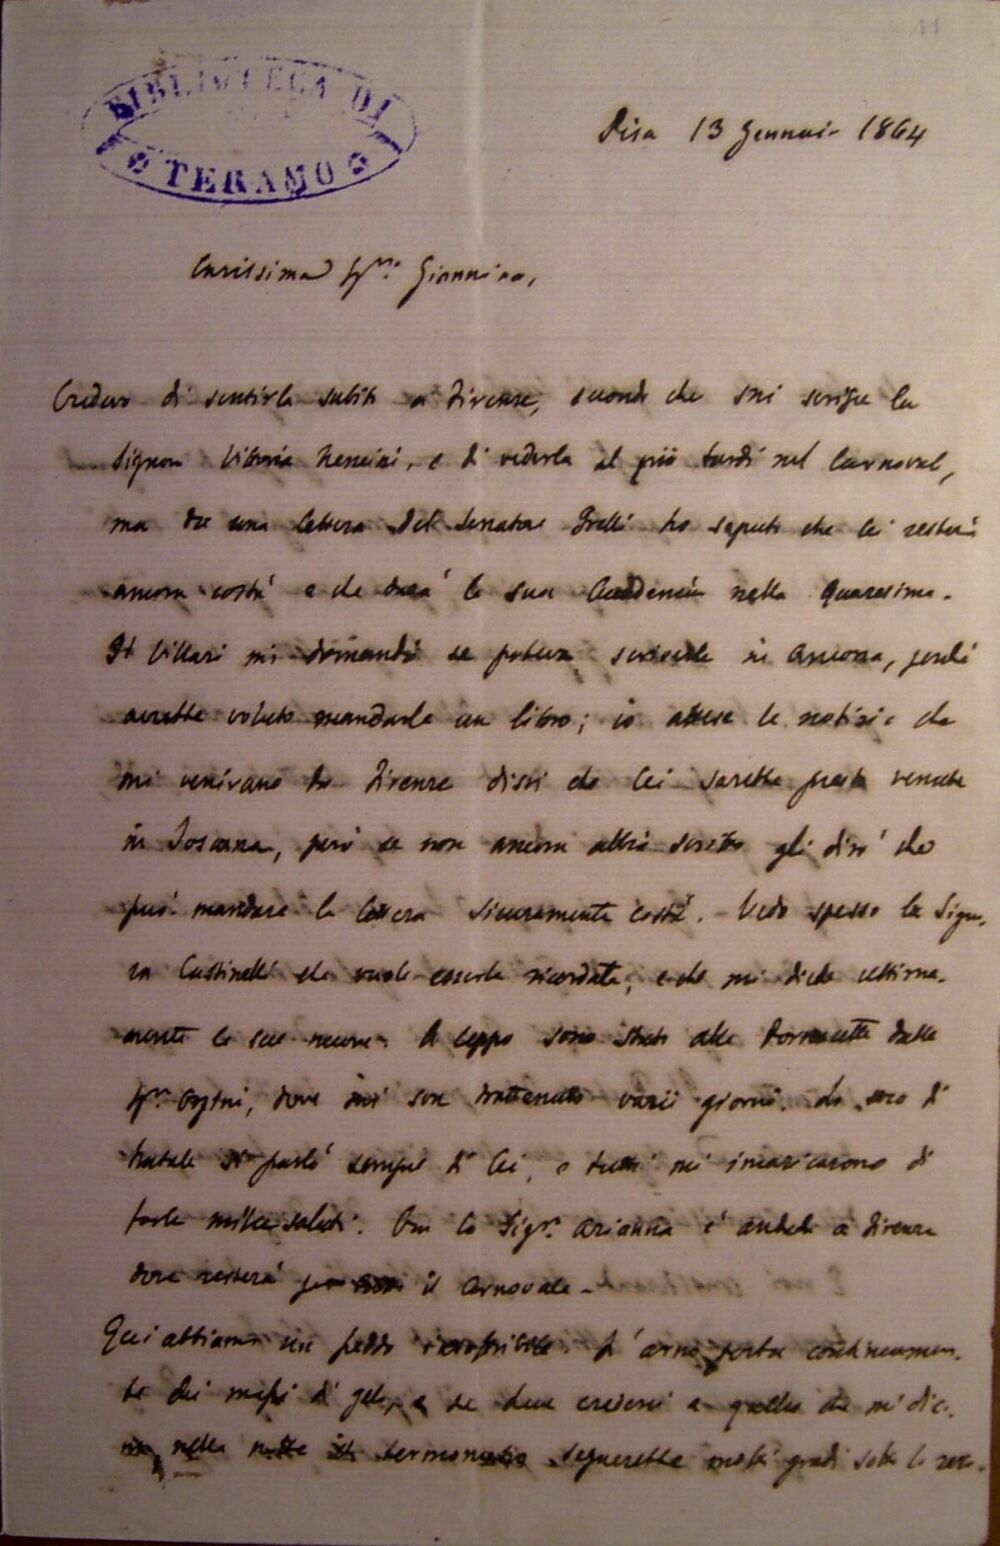 11
BIBLIOTECA DI
TERAMO
Pisa 13 Gennaio 1864
Carissima Sig.ra Giannina,
Credevo di sentirla subito a Firenze, secondo che mi scrisse la
Signora Vittoria, e di vederla al più tardi nel Carnoval,
ma da una lettera del Senatore ho saputo che lei resterà
ancora costà e che darà la sua Accademia nella Quaresima.
Il Villari mi domandò se poteva scriverle in Ancona, perché
avrebbe voluto mandarle un libro; io attese le notizie che
mi venivano da Firenze dissi che lei sarebbe presto venuta
in Toscana, però se non ancora abbia scritto gli dirò che
può mandare la lettera sicuramente costà. Vedo spesso la Signo-
ra Castinelli che vuole esserle ricordata, e che mi diede ultima-
mente le sue nuove. A Ceppo sono stato alle dalla
Sig.ra, dove mi son trattenuto varii giorni. La sera di
Natale si parlò sempre di lei, e tutti mi incaricarono di
farle mille saluti. Ora la Sig.ra Arianna è andata a Firenze
dove resterà il Carnovale.
Qui abbiamo un freddo. L'Arno porta continuamen-
te dei massi di gelo, e se deve credersi a quello che mi dico-
no, nella notte il termometro segnerebbe molti gradi sotto lo zero.